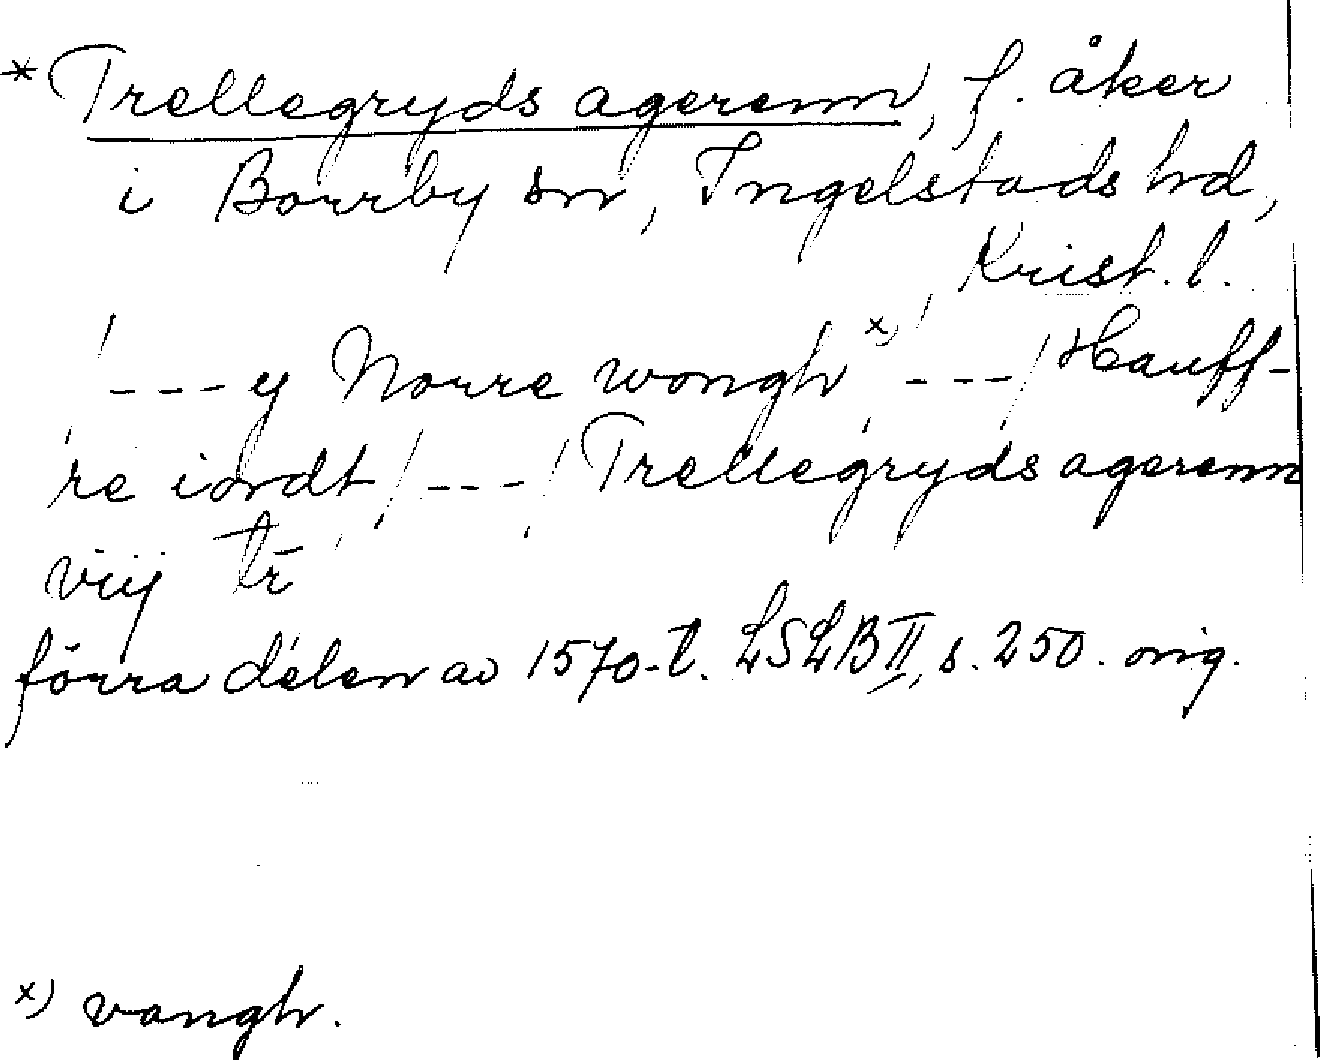 * Trellegryds agerenn, f. åker
i Borrby sn, Ingelstads hd,
Krist. l.
/---y Norre wongh x), ---/ Hauff-
re iordt /---/ Trellegryds agerenn
viij tr
förra delen av 1570-t. LSLB II, s. 250. orig.
x) vangh.